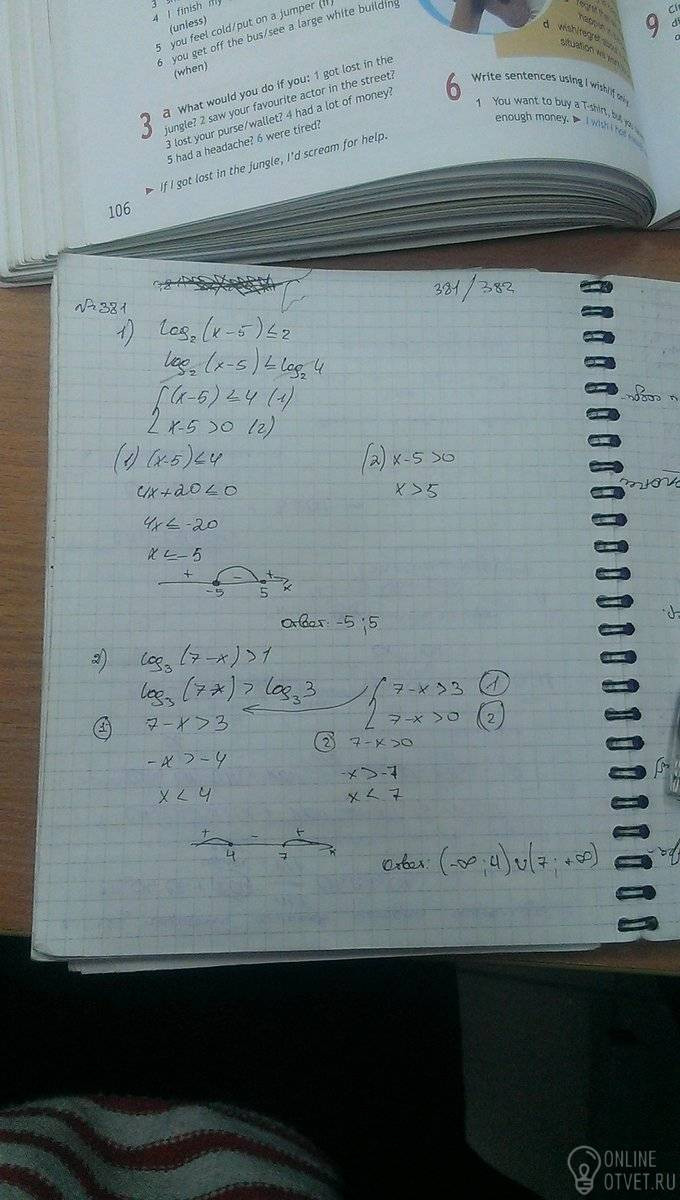 4 I finish my
(unless)
5 you feel cold/put on a jumper (if)
6 you get off the bus/see a large white building
(when)
3 a What would you do if you: 1 got lost in the
jungle? 2 saw your favourite actor in the street?
3 lost your purse/wallet? 4 had a lot of money?
5 had a headache? 6 were tired?
► If I got lost in the jungle, I'd scream for help.
106
d wish/regret
situation
6 Write sentences using I wish/if only.
1 You want to buy a T-shirt, but you
enough money. ► I wish I had
9
381/382
№381
1) log₂(x-5)≤2
log₂(x-5)≤log₂4
{(x-5)≤4 (1)
x-5>0 (2)
(1) (x-5)≤4 (2) x-5>0
4x+20≤0 x>5
4x≤-20
x≤-5
+ - +
-5 5 x
Ответ: -5;5
2) log₃(7-x)>1
log₃(7-x)>log₃3 {7-x>3 (1)
7-x>0 (2)
(1) 7-x>3 (2) 7-x>0
-x>-4 -x>-7
x<4 x<7
+ - +
4 7 x
Ответ: (-∞;4)∪(7;+∞)
ONLINE
OTVET.RU